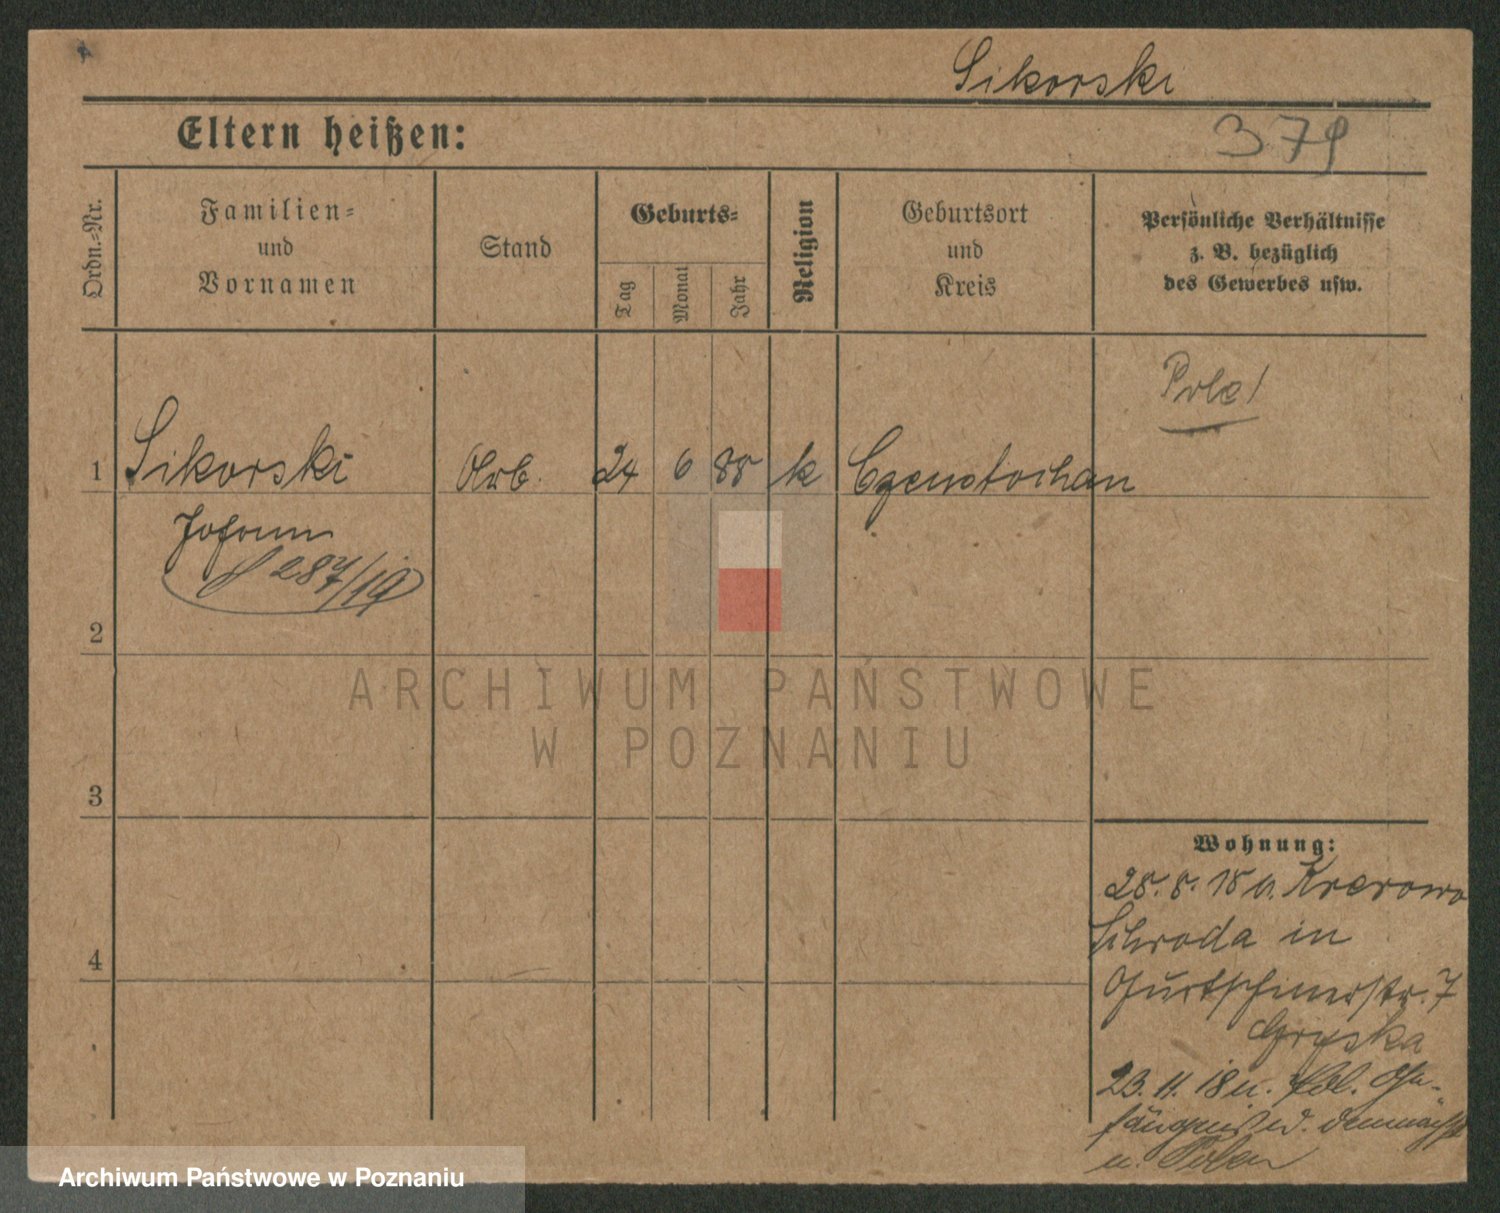 Sikorski
Eltern heißen:
379
Ordn.=Nr.
Familien=
und
Vornamen
Stand
Geburts=
Tag
Monat
Jahr
Religion
Geburtsort
und
Kreis
Persönliche Verhältnisse
z. B. bezüglich
des Gewerbes usw.
Pole!
1
Sikorski
Arb.
24
6
88
k
Czenstochau
Johann
287/19
2
3
4
ARCHIWUM PAŃSTWOWE
W POZNANIU
Wohnung:
28. 8. 18 v. Krerowo
Schroda in
Gurtschinerstr. 7
23. 11. 18 n.
demnächst
n. Polen
Archiwum Państwowe w Poznaniu